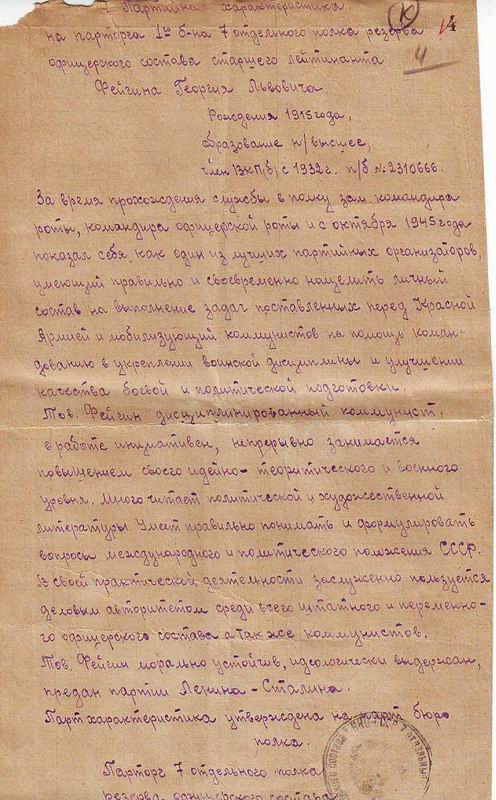 Партийная характеристика
на парторга 1го б-на 7 отдельного полка резерва
офицерского состава старшего лейтинанта
Фейгина Георгия Львовича.
К
14
4
Рождения 1915 года,
образование н/высшее,
член ВКП(б) с 1932г. п/б №2310666.
За время прохождения службы в полку зам. командира
роты, командира офицерской роты и с октября 1945 года
показал себя как один из лучших партийных организаторов,
умеющий правильно и своевременно нацелить личный
состав на выполнение задач поставленных перед Красной
Армией и мобилизующий коммунистов на помощь коман-
дованию в укреплении воинской дисциплины и улучшении
качества боевой и политической подготовки.
Тов. Фейгин дисциплинированный коммунист,
в работе инициативен, непрерывно занимается
повышением своего идейно-теоритического и военного
уровня. Много читает политической и художественной
литературы. Умеет правильно понимать и формулировать
вопросы международного и политического положения СССР.
В своей практической деятельности заслуженно пользуется
деловым авторитетом среди всего штатного и переменно-
го офицерского состава а так же коммунистов.
Тов. Фейгин морально устойчив, идеологически выдержан,
предан партии Ленина-Сталина.
Парт характеристика утверждена на парт бюро
полка.
Парторг 7 отдельного полка
резерва офицерского состава